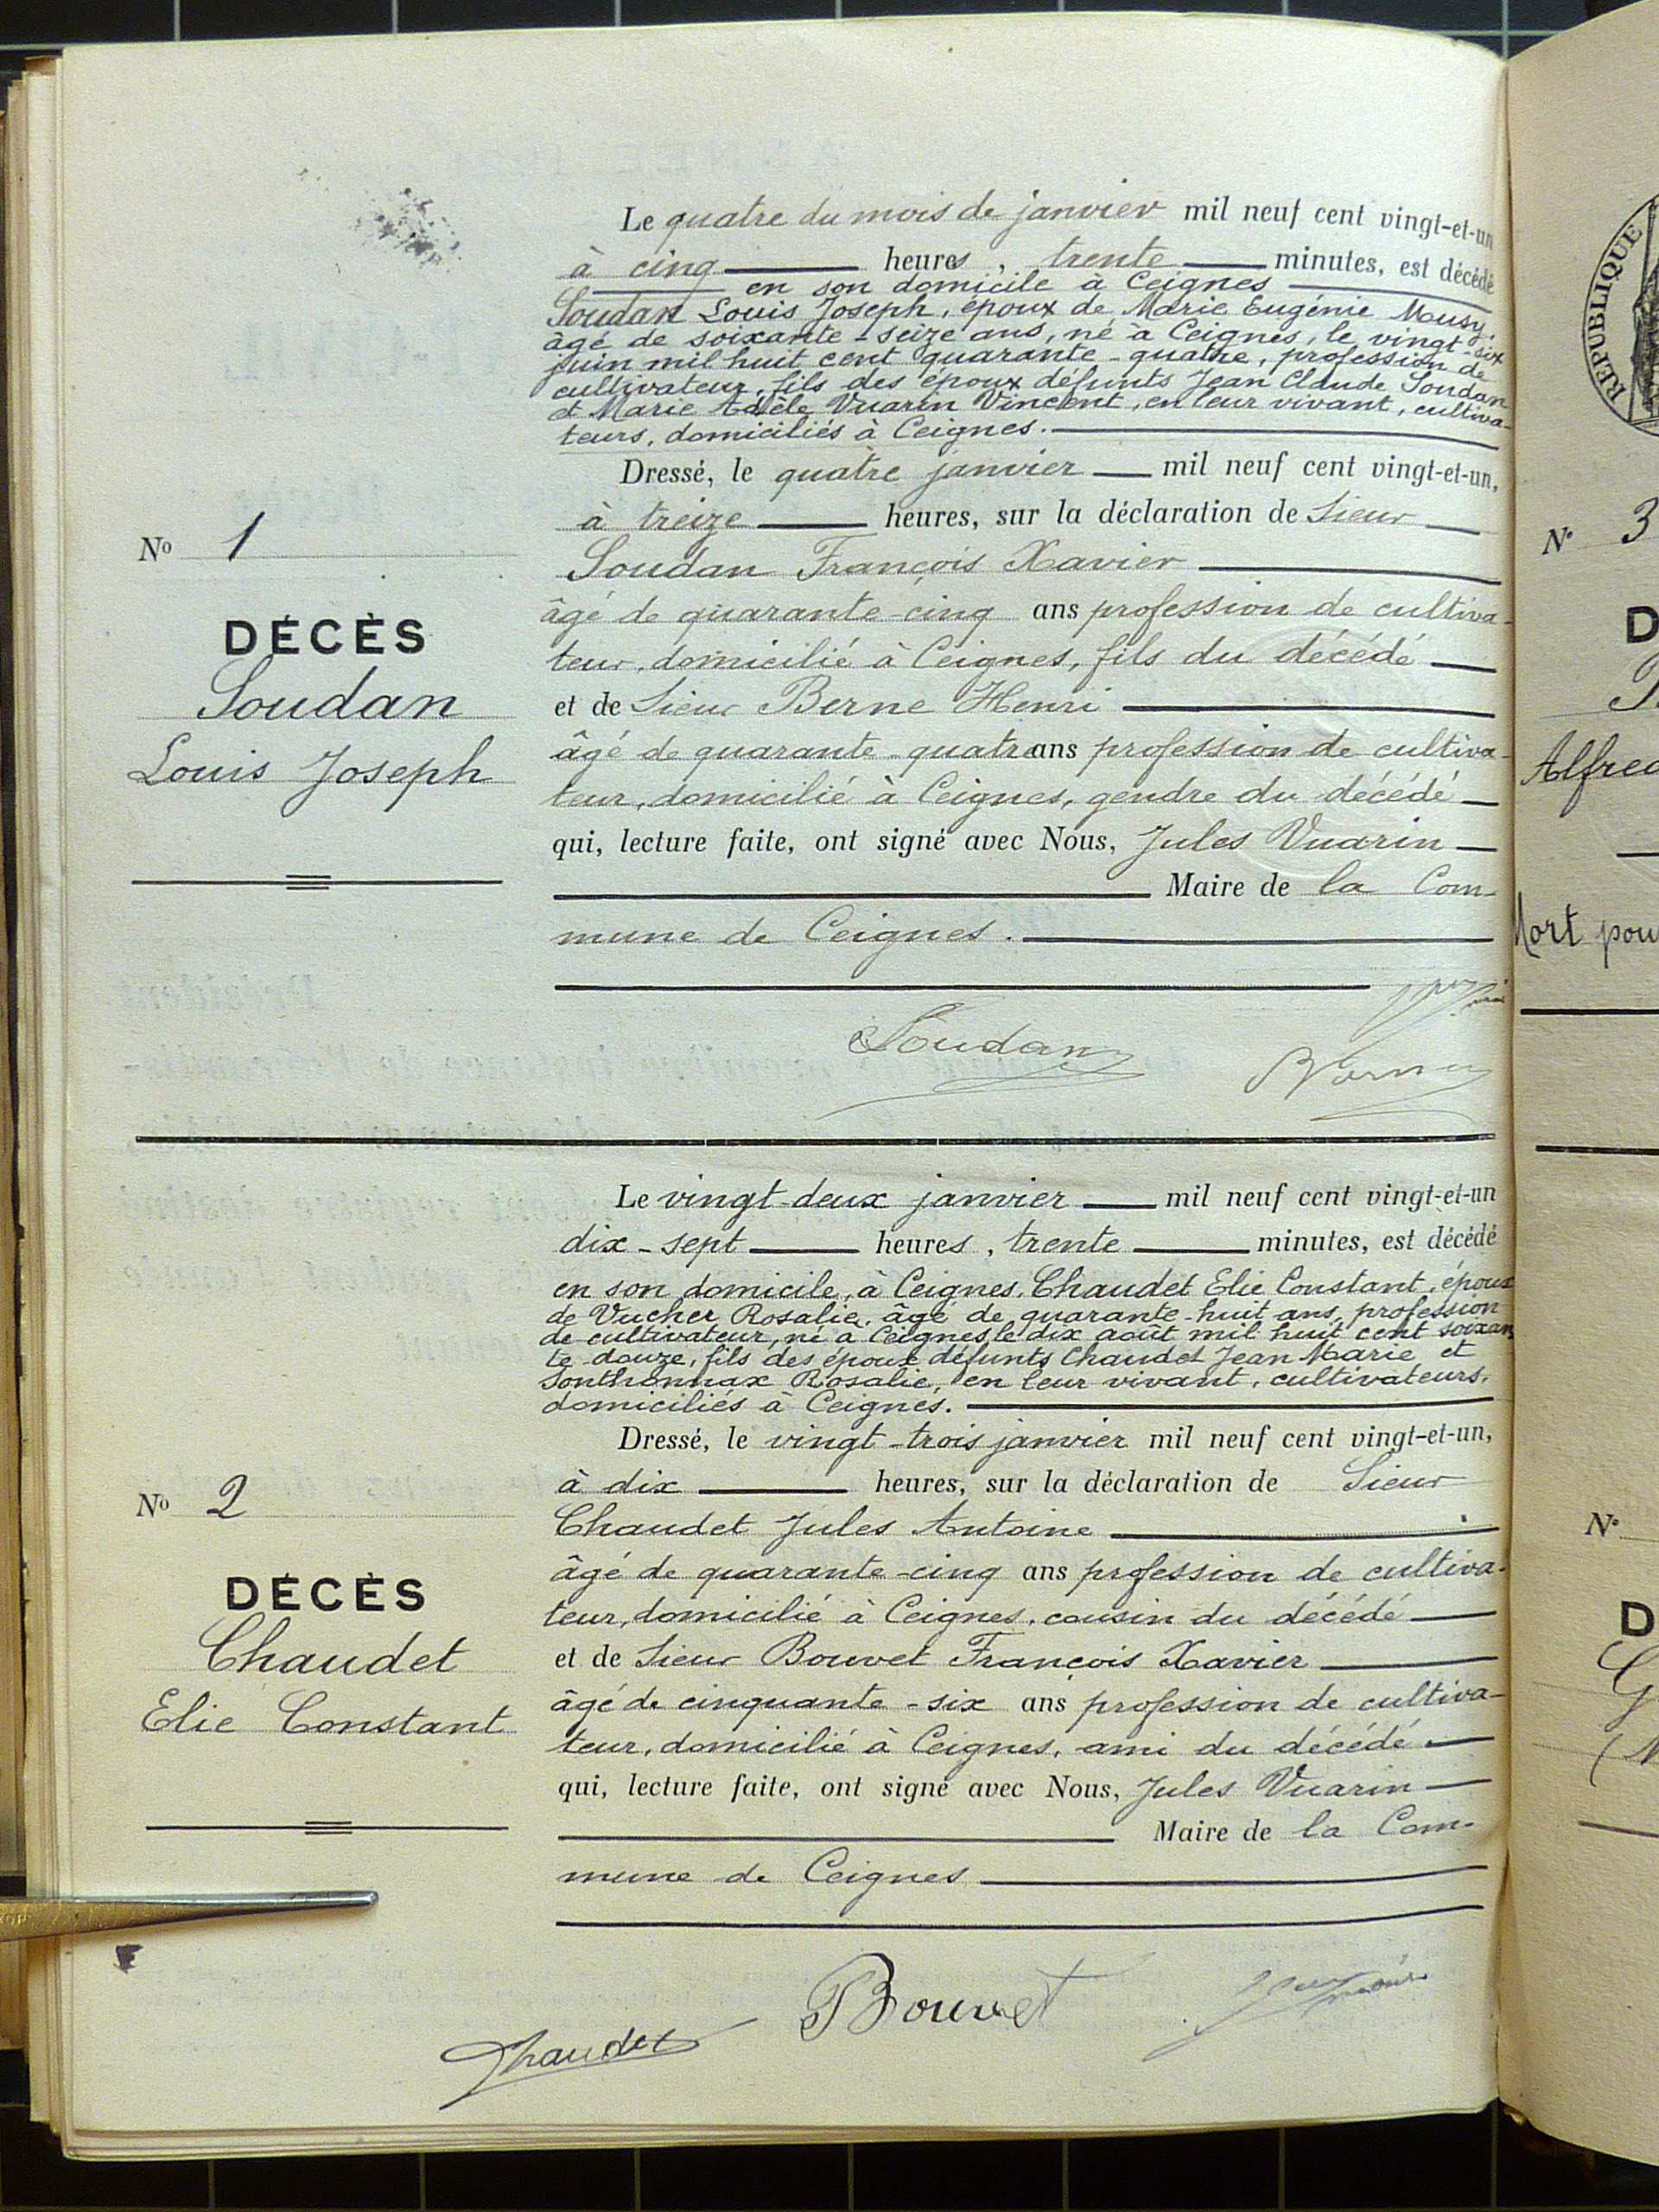 Le quatre du mois de janvier mil neuf cent vingt-et-un
à cinq heures, trente minutes, est décédé
en son domicile à Ceignes
Soudan Louis Joseph, époux de Marie Eugénie Musy.
âgé de soixante-seize ans, né à Ceignes, le vingt-six
juin mil huit cent quarante-quatre, profession de
cultivateur, fils des époux défunts Jean Claude Soudan
et Marie Adèle Vuarin Vincent, en leur vivant, cultiva-
teurs, domiciliés à Ceignes.
Dressé, le quatre janvier mil neuf cent vingt-et-un,
à treize heures, sur la déclaration de Sieur
Soudan François Xavier
âgé de quarante-cinq ans profession de cultiva-
teur, domicilié à Ceignes, fils du décédé
et de Sieur Berne Henri
âgé de quarante-quatre ans profession de cultiva-
teur, domicilié à Ceignes, gendre du décédé
qui, lecture faite, ont signé avec Nous, Jules Vuarin
Maire de la Com-
mune de Ceignes.
Soudan
Berne
No 1
DÉCÈS
Soudan
Louis Joseph
Le vingt-deux janvier mil neuf cent vingt-et-un
dix-sept heures, trente minutes, est décédé
en son domicile, à Ceignes, Chaudet Elie Constant, époux
de Vucher Rosalie, âgé de quarante-huit ans, profession
de cultivateur, né à Ceignes, le dix août mil huit cent soixan
te-douze, fils des époux défunts Chaudet Jean Marie et
Sonthonnax Rosalie, en leur vivant, cultivateurs,
domiciliés à Ceignes.
Dressé, le vingt-trois janvier mil neuf cent vingt-et-un,
à dix heures, sur la déclaration de Sieur
Chaudet Jules Antoine
âgé de quarante-cinq ans profession de cultiva-
teur, domicilié à Ceignes, cousin du décédé
et de Sieur Bouvet François Xavier
âgé de cinquante-six ans profession de cultiva-
teur, domicilié à Ceignes, ami du décédé
qui, lecture faite, ont signé avec Nous, Jules Vuarin
Maire de la Com-
mune de Ceignes
Bouvet
Chaudet
No 2
DÉCÈS
Chaudet
Elie Constant
RÉPUBLIQUE
No 3
D
Alfred
Mort pou
No
D